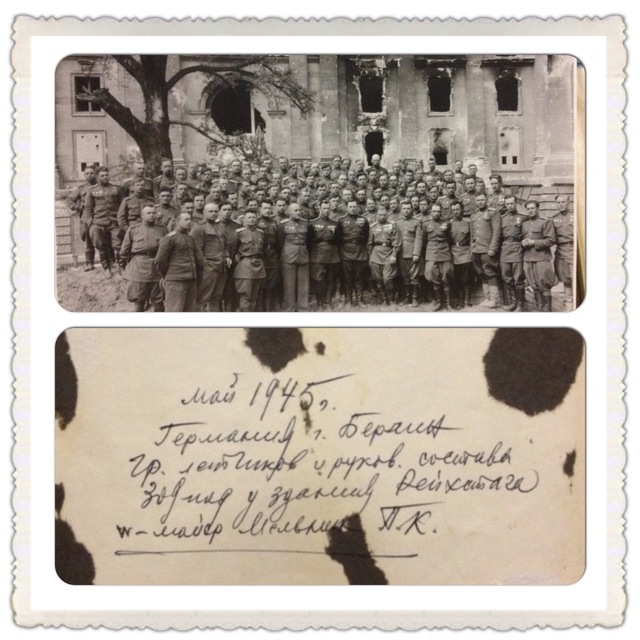 май 1945г.
Германия г. Берлин
гр. летчиков и руков. состава
у здания Рейхстага
майор Мельник П.К.